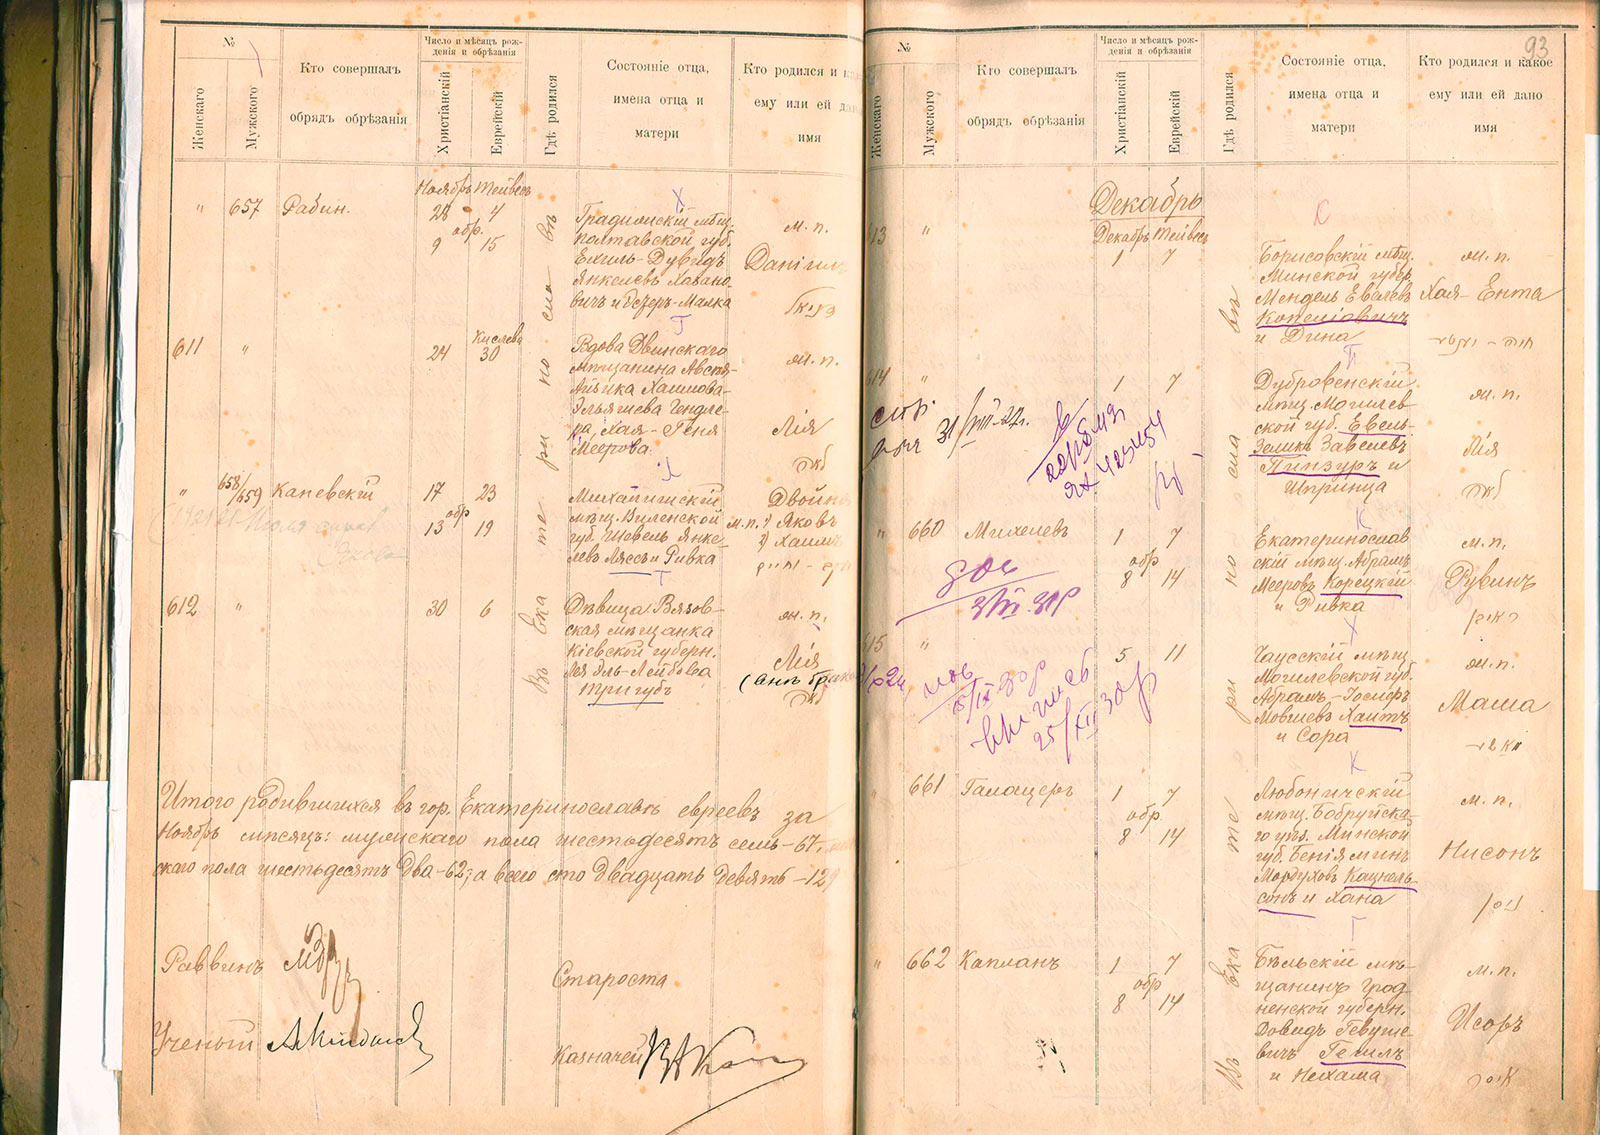 №
Женскаго
Мужского
Кто совершалъ
обрядъ обрѣзанія
Число и мѣсяцъ рож-
денія и обрѣзанія
Христіанскій
Еврейскій
Гдѣ родился
Состояніе отца,
имена отца и
матери
Кто родился и
ему или ей дано
имя
Ноябрь Тейвесъ
" 657 Рабин. 28 4
обр.
9 15
Градижскій мѣщ.
полтавской губ.
Ехиль-Дувидъ
Янкелевъ Хазано-
вичъ и Эстеръ-Малка
м. п.
Даніилъ
דניאל
611 " 24 Кислева 30
Вдова Двинскаго
мѣщанина
Хаимова-
Эльяшева Гендле-
ра, Хая-Геня
Меерова
ж. п.
Лія
לאה
" 658/659 Каневскій 17 23
обр
13 19
Михалишскій
мѣщ. Виленской
губ. Шевель Янке-
левъ Лясъ и Ривка
Двойня
м. п. 1) Яковъ
2) Хаимъ
612 " 30 6
Дѣвица Вязов-
ская мѣщанка
Кіевской губерн.
Лея Эль-Лейбова
Тригубъ
ж. п.
Лія
(внѣ брака)
לאה
Въ Екатеринославѣ
Итого родившихся въ гор. Екатеринославѣ евреевъ за
Ноябрь мѣсяцъ: мужскаго пола шестьдесятъ семь-67,
скаго пола шестьдесятъ два-62; а всего сто двадцать девять-129
Раввинъ
Староста
Ученый
Казначей
93
№
Женскаго
Мужского
Кто совершалъ
обрядъ обрѣзанія
Число и мѣсяцъ рож-
денія и обрѣзанія
Христіанскій
Еврейскій
Гдѣ родился
Состояніе отца,
имена отца и
матери
Кто родился и какое
ему или ей дано
имя
Декабрь
Декабрь Тейвесъ
613 " 1 7
Борисовскій мѣщ.
Минской губер.
Мендель Евелевъ
Копеліовичъ
и Дина
ж. п.
Хая-Ента
614 " 1 7
Дубровенскій
мѣщ. Могилев-
ской губ. Евель-
Зеликъ Завелевъ
Пинзуръ и
Шпринца
ж. п.
Лія
לאה
31/VIII-27г.
" 660 Михелевъ 1 7
обр
8 14
Екатеринослав
скій мѣщ. Абрамъ
Мееровъ Корецкій
и Ривка
м. п.
Рувинъ
ראובן
615 " 5 11
Чаусскій мѣщ
Могилевской губ.
Абрамъ-Іосифъ
Мовшевъ Хаитъ
и Сора
ж. п.
Маша
" 661 Галацеръ 1 7
обр.
8 14
Любоничскій
мѣщ. Бобруйска-
го уѣз. Минской
губ. Беніяминъ
Мордуховъ Кацнель-
сонъ и Хана
м. п.
Нисонъ
ניסן
" 662 Капланъ 1 7
обр
8 14
Бѣльскій мѣ-
щанинъ Грод-
ненской губерн.
Довидъ Гевуше-
вичъ Гешлъ
и Нехама
м. п.
Исоръ
Въ Екатеринославѣ